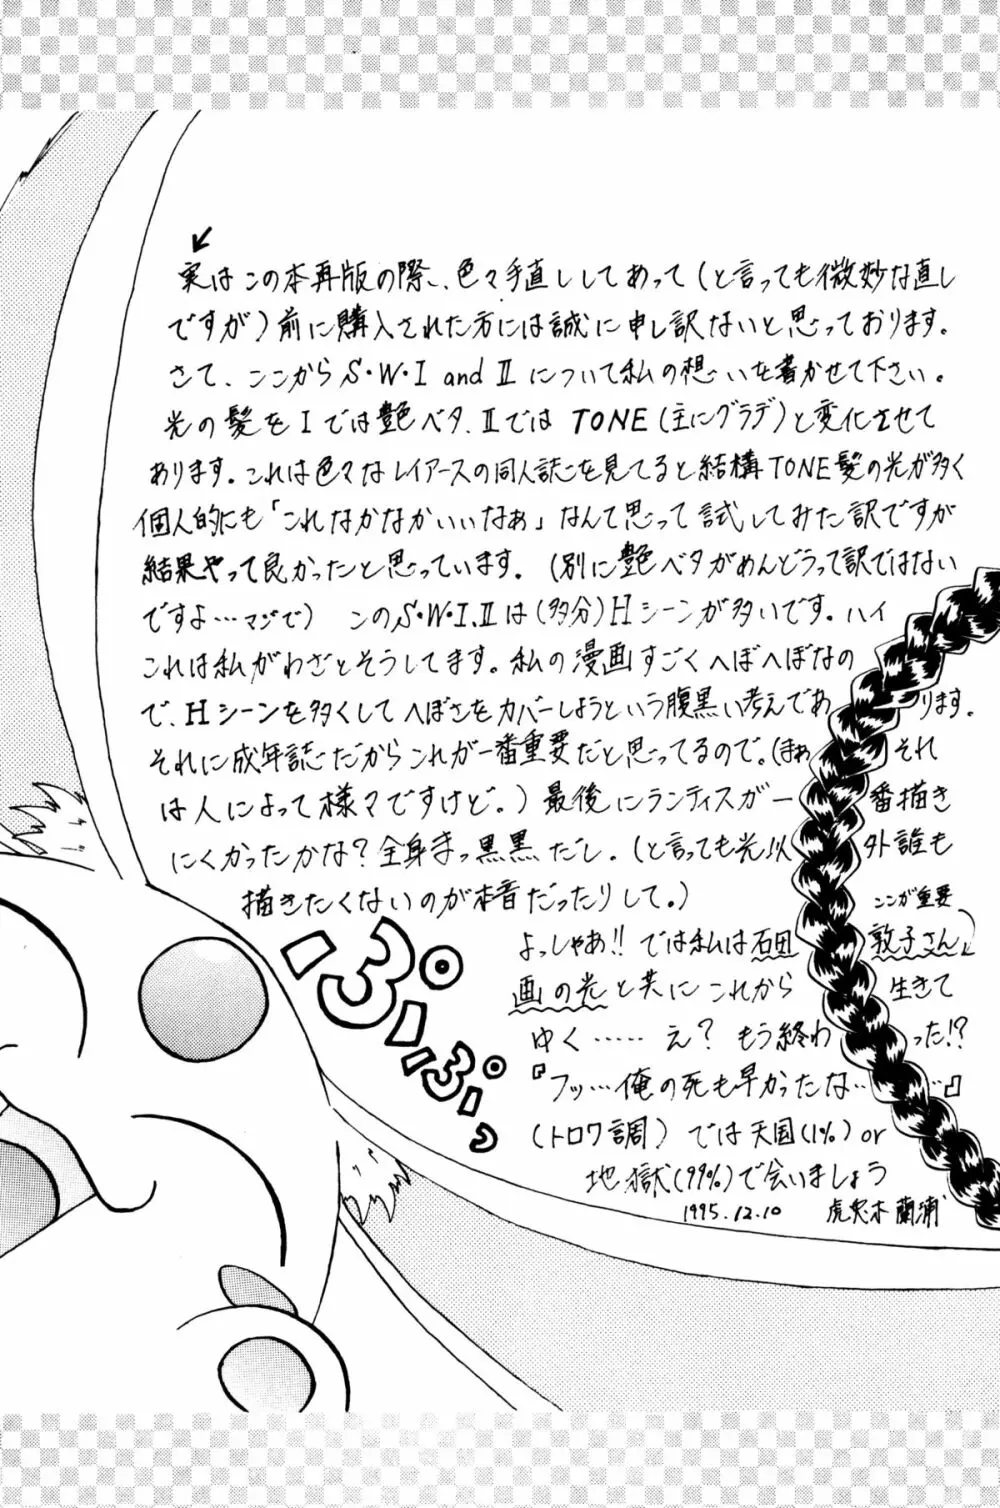 実はこの本再版の際、色々手直ししてあって(と言っても微妙な直し
ですが)前に購入された方には誠に申し訳ないと思っております。
さて、ここからS・W・I and IIについて私の想いを書かせて下さい。
光の髪をIでは艶ベタ、IIではTONE(主にグラデ)と変化させて
あります。これは色々なレイアースの同人誌を見てると結構TONE髪の光が多く
個人的にも「これなかなかいいなぁ」なんて思って試してみた訳ですが
結果やって良かったと思っています。(別に艶ベタがめんどうって訳ではない
ですよ…マジで) このS・W・I、IIは(多分)Hシーンが多いです。ハイ
これは私がわざとそうしてます。私の漫画すごくへぼへぼなの
で、Hシーンを多くしてへぼさをカバーしようという腹黒い考えであります。
それに成年誌だからこれが一番重要だと思ってるので。(まぁそれ
は人によって様々ですけど。)最後にランティスが一番描き
にくかったかな?全身まっ黒黒だし。(と言っても光以外誰も
描きたくないのが本音だったりして。)
ぷぷぷっ
ココが重要
よっしゃあ!!では私は石田敦子さん
画の光と共にこれから生きて
ゆく……え?もう終わった!?
『フッ…俺の死も早かったな……』
(トロワ調)では天国(1%)or
地獄(99%)で会いましょう
1995.12.10 虎兎木蘭浦